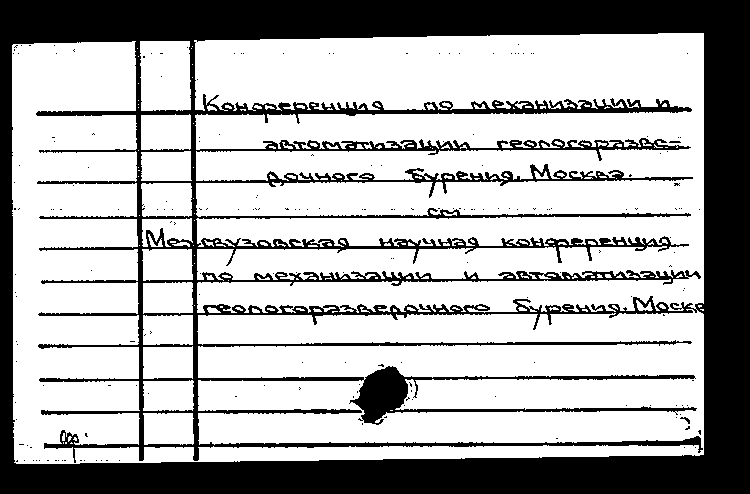 Конференция по механизации и
автоматизации геологоразве=
дочного бурения. Москва.
см
Межвузовская научная конференция
по механизации и автоматизации
геологоразведочного бурения. Москв